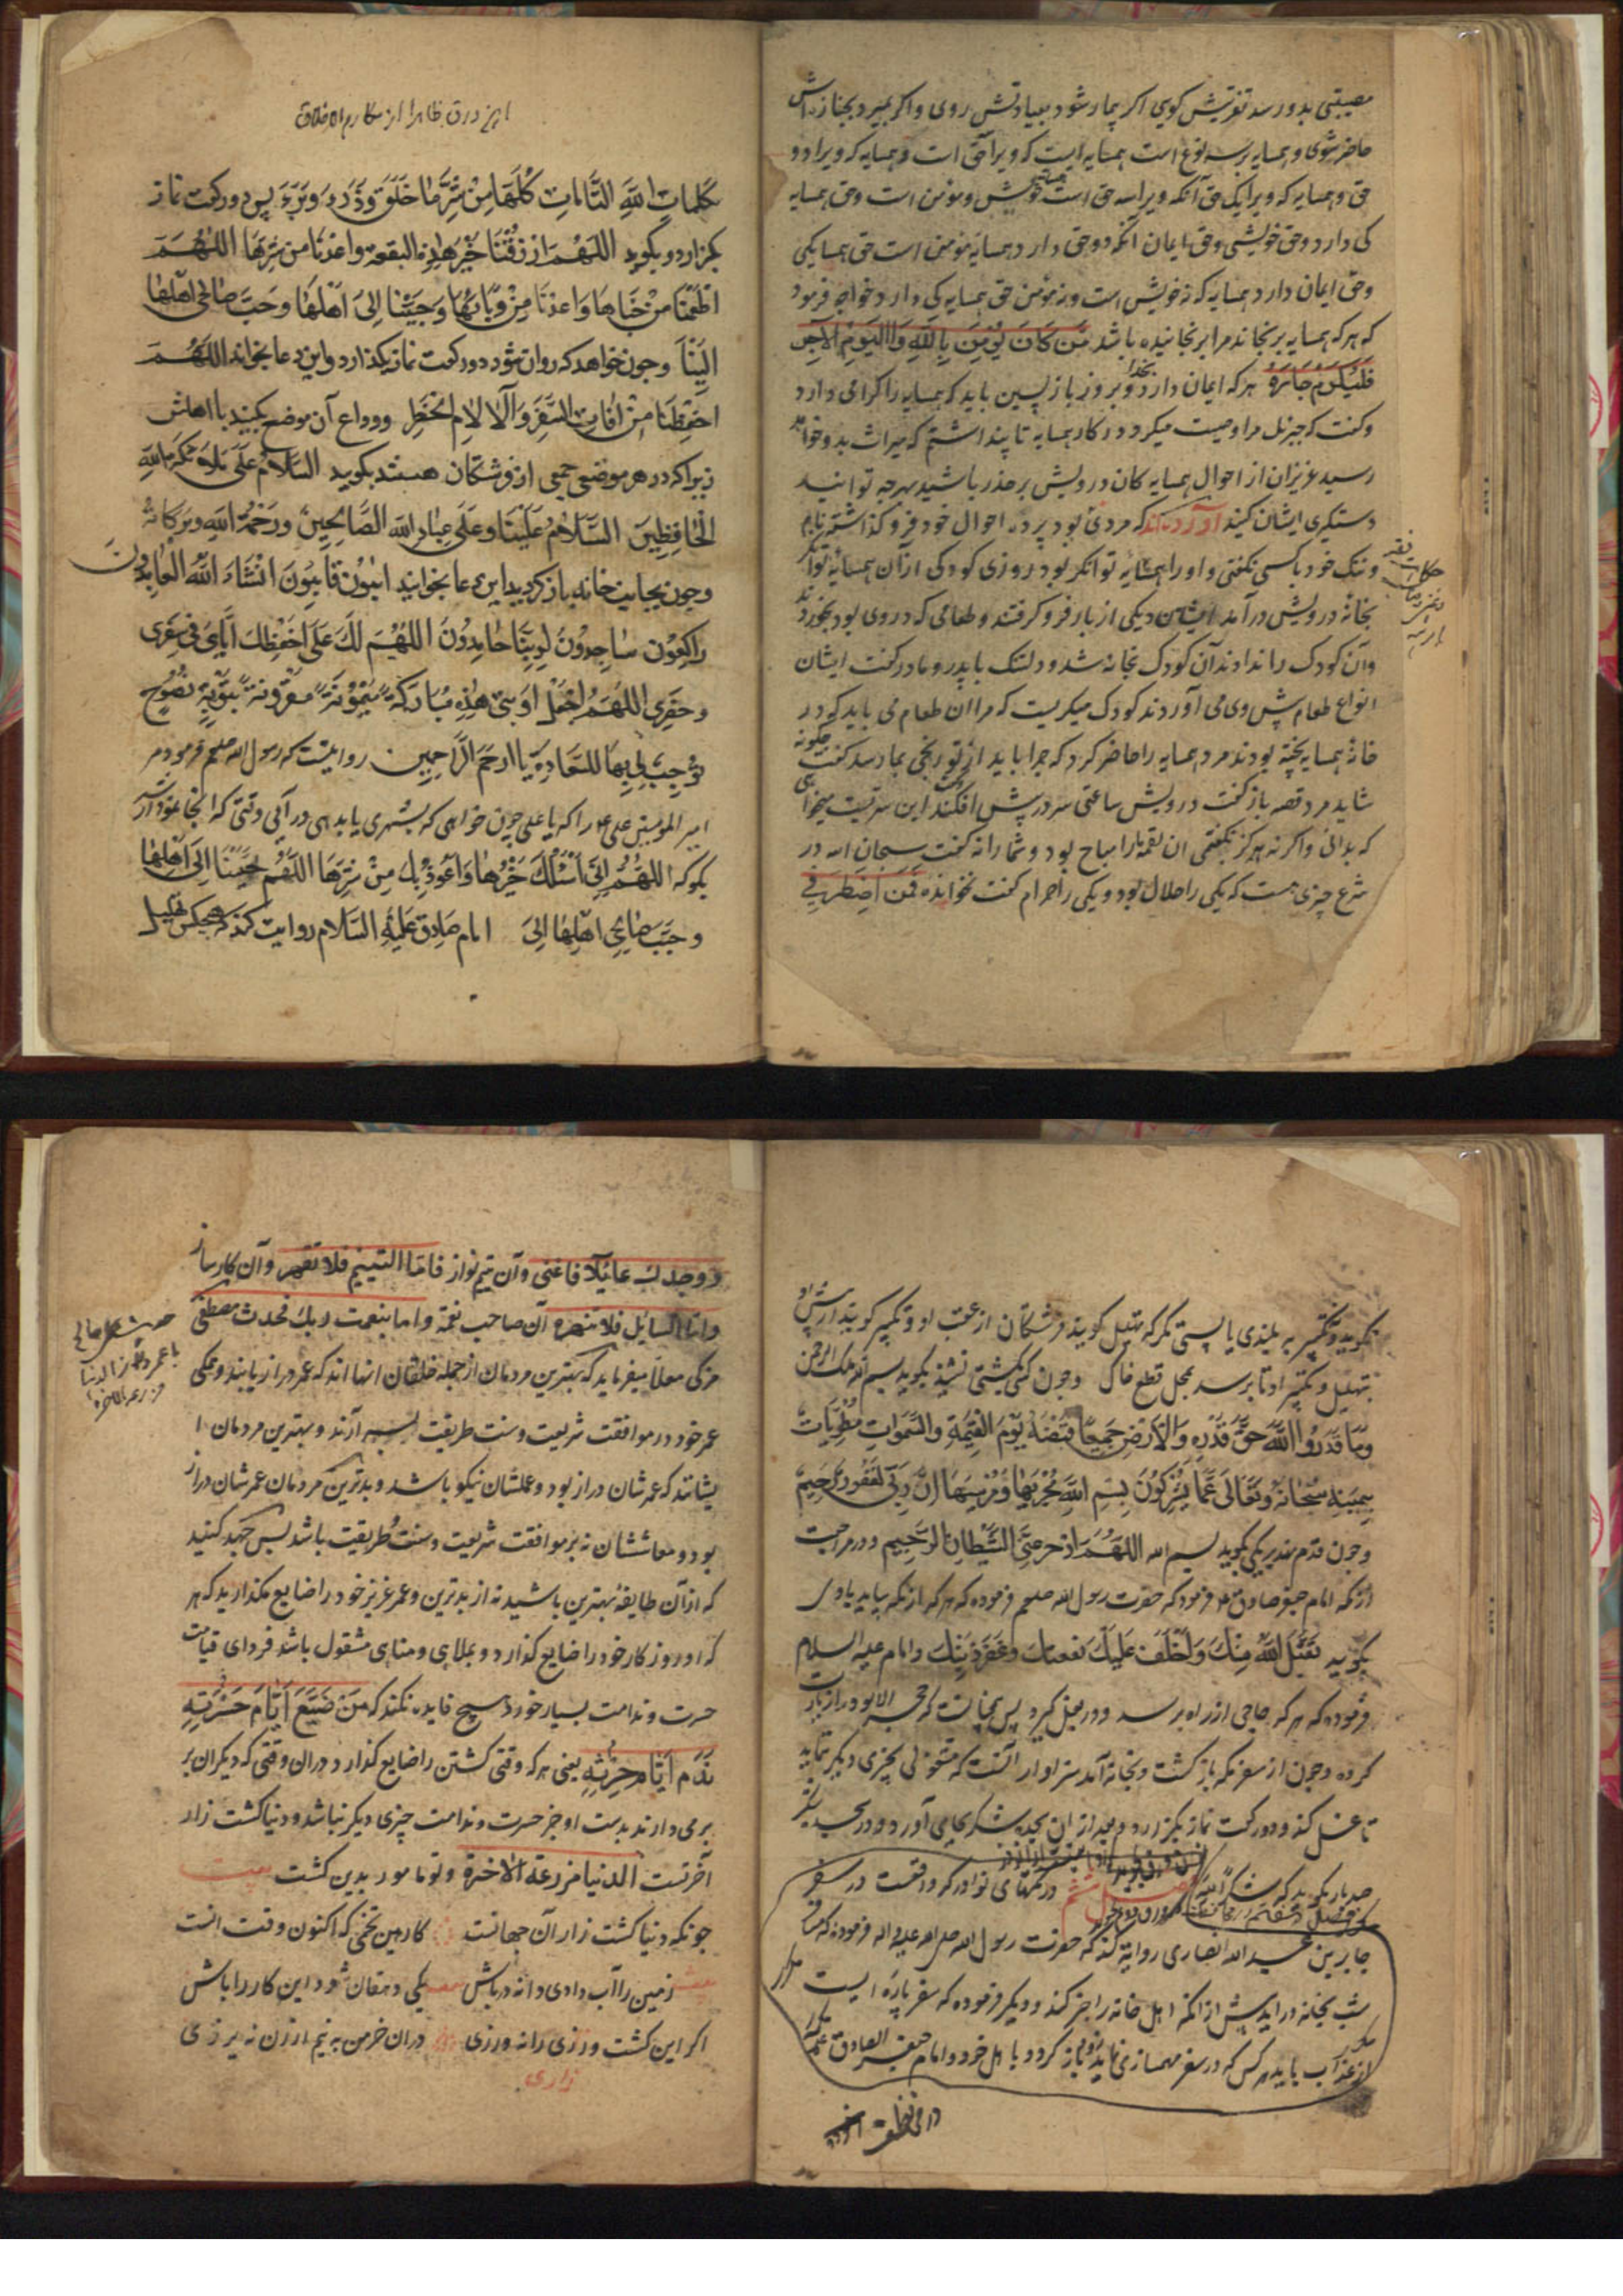 مصیبتی بدو رسد تعزیتش کوی اکر بیمار شود بعیادتش روی واکر بمیرد بجنازه اش
حاضر شوی و همسایه بر سه نوع است همسایه ایست که ویرا حق است و همسایه که ویرا دو
حق و همسایه که ویرا یک حق آنکه ویرا سه حق است خویش و مؤمن است وحق همسایه
کی دارد وحق خویشی وحق ایمان انکه دو حق دارد همسایه مؤمن است حق همسایکی
وحق ایمان دارد همسایه که نه خویش است و نه مؤمن حق همسایه کی دارد خواجه فرمود
که هر که همسایه برنجاند مرا برنجانیده باشد مَن کَانَ یُؤمِنَ بِاللّٰهِ وَالیَومِ الآخِرِ
فَلیُکرِم جَارَهُ هر که ایمان دارد بخدا و بروز بازپسین باید که همسایه را کرامی دارد
وکفت که جبرئل مرا وصیت میکرد در کار همسایه تا پنداشتم که میراث بدو خواهد
رسید عزیزان از احوال همسایه کان درویش بر حذر باشید بهرچه توانید
دستکیری ایشان کنید آورده اند که مردی بود پرده احوال خود فرو کذاشته نام
و ننک خود باکسی نکفتی و او را همسایه توانکر بود روزی کودکی ازان همسایه توانکر
بخانهٔ درویش درآمد ایشان دیکی از بار فرو کرفتند و طعامی که در وی بود بخوردند
وآن کودک را ندادند آن کودک بخانه شد و دلتنک با پدر و مادر کفت ایشان
انواع طعام پیش وی می آوردند کودک میکریست که مرا ان طعام می باید که در
خانهٔ همسایه پخته بودند مرد همسایه را حاضر کرد که چرا باید از تو رنجی بما رسد کفت چکونه
شاید مرد قصه باز کفت درویش ساعتی سر در پیش افکند این سریست میخواهی
که بدانی واکر نه هرکز نکفتمی ان لقمه مارا مباح بود و شما را نه کفت سبحان الله در
شرع چیزی هست که یکی را حلال بود و یکی را حرام کفت نخوانده فَمَن اضطُرَّ فی
این ورق ظاهرا از مکارم الاخلاق
بکلماتِ اللّٰهِ التَّامَّاتِ کُلِّهَا مِنْ شَرِّ مَا خَلَقَ وَذَرَءَ وَبَرَءَ پس دو رکعت نماز
بکزارد و بکوید اللّٰهُمَّ ارزُقْنَا خَیْرَ هٰذِهِ البقعة واعذنا من شرّها اللّٰهُمَّ
اطْعِمْنَا من جَنَاهَا وَاعذنَا مِنْ وَبَائِهَا وَحَبِّبْنَا اِلیٰ اَهْلِهَا وَحَبِّبْ صَالِحِی اَهْلِهَا
اِلَیْنَا وچون خواهد که روان شود دو رکعت نماز بکذارد واین دعا بخواند اللّٰهُمَّ
احْفِظْنَا مِنْ اٰفَاتِ السَّفَرِ وَآلَالاِم الْحَضَرِ و وداع آن موضع بکنید با اهلش
زیرا که در هر موضعی جمعی از فرشتکان هستند بکویید السَّلَامُ عَلَیٰ مَلَائِکَةِ اللّٰهِ
الْحَافِظِینَ السَّلَامُ عَلَیْنَا وَعَلَیٰ عِبَادِ اللّٰهِ الصَّالِحِینَ وَرَحْمَةُ اللّٰهِ وَبَرَکَاتُهُ
وچون بجانب خانه باز کردید این دعا بخوانید اٰئِبُونَ تَائِبُونَ انْشَاءَ اللّٰهُ الْعَابِدُونَ
رَاکِعُونَ سَاجِدُونَ لِرَبِّنَا حَامِدُونَ اللّٰهُمَّ لَكَ عَلَیٰ حِفْظِكَ اِیَّایَ فِی سَفَرِی
وَحَضَرِی اللّٰهُمَّ اجْعَلْ اَوْبَتِی هٰذِهِ مُبَارَکَةً مَیْمُونَةً مَقْرُونَةً بِتَوْبَةٍ نَصُوحٍ
تُوجِبُ لِی بِهَا السَّعَادَةَ یَا اَرْحَمَ الرَّاحِمِینَ روایتست که رسول الله صلعم فرمود مر
امیر المؤمنین علی را که یا علی چون خواهی که بشهری یا بدهی درآیی وقتی که انجا نمودار شد
بکو که اللّٰهُمَّ اِنِّی اَسْئَلُكَ خَیْرَهَا وَاَعُوذُ بِكَ مِنْ شَرِّهَا اللّٰهُمَّ حَبِّبْنَا اِلَی اَهْلِهَا
وَحَبِّبْ صَالِحِی اَهْلِهَا اِلَیَّ امام صَادِق عَلَیْهِ السَّلَام روایت کند که هیچکس تهلیل
نکوید و تکبیر بر بلندی یا پستی مکر که تهلیل کویند فرشتکان از عقب او و تکبیر کویند از پیش او
بتهلیل و تکبیر او تا برسد بمحل قطع خاک وچون کسی بکشتی نشیند بکوید بسم الله ملک الرحمن
وَمَا قَدَرُوا اللّٰهَ حَقَّ قَدْرِهِ وَالْاَرْضُ جَمِیعًا قَبْضَتُهُ یَوْمَ الْقِیٰمَةِ وَالسَّمٰوَاتُ مَطْوِیَّاتٌ
بِیَمِینِهِ سُبْحَانَهُ وَتَعَالَیٰ عَمَّا یُشْرِکُونَ بِسْمِ اللّٰهِ مَجْرٰیهَا وَمُرْسٰیهَا اِنَّ رَبِّی لَغَفُورٌ رَحِیمٌ
وچون قدم نهد بر بکوید بسم الله اللّٰهُمَّ الشَّیْطَانَ الرَّجِیم و در مراجعت
از مکه امام جعفر صادق فرمود که حضرت رسول الله صلعم فرموده که هر که از مکه بیاید با وی
بکویید تَقَبَّلَ اللّٰهُ مِنْكَ وَاَخْلَفَ عَلَیْكَ نفقتك وَغَفَرَ ذَنْبَكَ وامام علیه السلام
فرموده که هر که حاجی از راه برسد و در بغل کیرد پس بمنزله انست که حجر الاسود را زیارت
کرده وچون از سفر مکه باز کشت و بخانه آمد سزاوار انست که مشغول بچیزی دیکر نماید
تا غسل کند و دو رکعت نماز بکزارد و بعد از ان سجده شکر بجای آورد و در سجده
صد بار بکوید که شکراً لله فصل هشتم در نکتهای نوادر که واقعست در سفر
جابر بن عبد الله انصاری روایة کند که حضرت رسول الله صلی الله علیه واله فرموده که مسافر
شب بخانه درآید پیش از انکه اهل خانه را خبر کند و دیکر فرموده که سفر پارهٔ ایست
از عذاب باید هر کس که در سفر مهمسازی نماید زود باز کردد با اهل خود وامام جعفر الصادق
وَوَجَدَكَ عَائِلًا فَاَغنیٰ وآن یتیم نواز فَاَمَّا الْیَتِیمَ فَلَا تَقْهَر وآن کارساز
وَاَمَّا السائل فلا تنهر آن صاحب نعمة واما بنعمت ربك فحدث مصطفی
مزکی معلا میفرماید که بهترین مردمان از جمله خلقان انها اند که عمر دراز یابند وهمکی
عمر خود در موافقت شریعت وسنت طریقت بسر آرند وبهترین مردمان ا
یشانند که عمرشان دراز بود و عملشان نیکو باشد وبدترین مردمان عمرشان دراز
بود و معاششان نه بر موافقت شریعت وسنت طریقت باشد پس جهد کنید
که ازان طایفهٔ بهترین باشید نه از بدترین وعمر عزیز خود را ضایع مکذارید که هر
که او روزکار خود را ضایع کذارد و بملاهی و مناهی مشغول باشد فردای قیامت
حسرت وندامت بسیار خورد هیچ فایده نکند که مَن ضَیَّعَ اَیَّامَ حَرْثِهِ
نَدِمَ اَیَّامَ حِرْثِهِ یعنی هر که وقتی کشتن را ضایع کذارد دران وقتی که دیکران بر
برمی دارند بدست او جز حسرت وندامت چیزی دیکر نباشد ودنیا کشت زار
آخرتست الدنیا مزرعة الاخرة وتو مامور بدین کشت بیت
چونکه دنیا کشت زار آن جهانست کار این تخمی که اکنون وقت انست
زمین را آب دادی دانه درپاش یکی دهقان شو و این کار را باش
اکر این کشت ورزی را نه ورزی دران خرمن به نیم ارزن نه یرزی
زاری